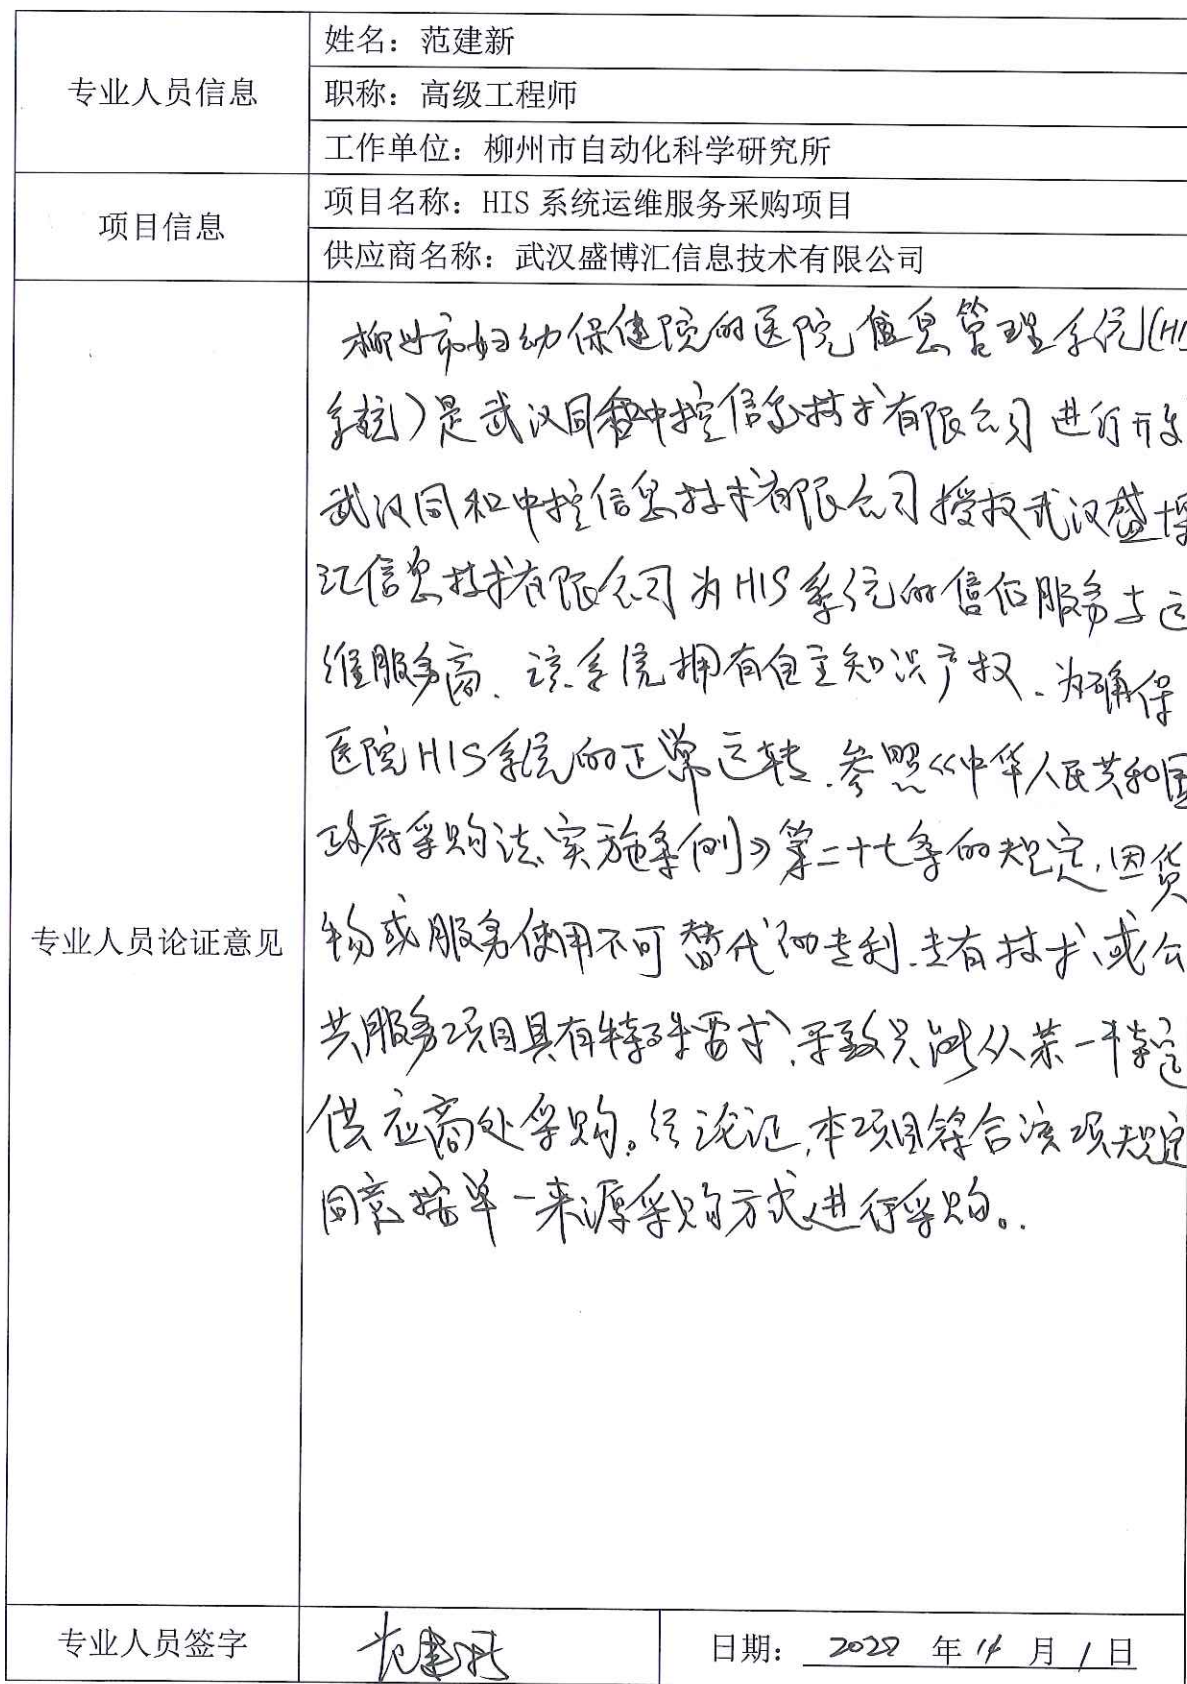 专业人员信息
姓名：范建新
职称：高级工程师
工作单位：柳州市自动化科学研究所
项目信息
项目名称：HIS 系统运维服务采购项目
供应商名称：武汉盛博汇信息技术有限公司
专业人员论证意见
柳州市妇幼保健院的医院信息管理系统(HIS
系统)是武汉同和中控信息技术有限公司进行开发
武汉同和中控信息技术有限公司授权武汉盛博
汇信息技术有限公司为HIS系统的售后服务与运
维服务商、该系统拥有自主知识产权、为确保
医院HIS系统的正常运转、参照《中华人民共和国
政府采购法实施条例》第二十七条的规定,因货
物或服务使用不可替代的专利、专有技术、或公
共服务项目具有特殊要求、导致只能从某一特定
供应商处采购。经论证,本项目符合该项规定
同意按单一来源采购方式进行采购。
专业人员签字
范建新
日期： 2022 年 月 1 日